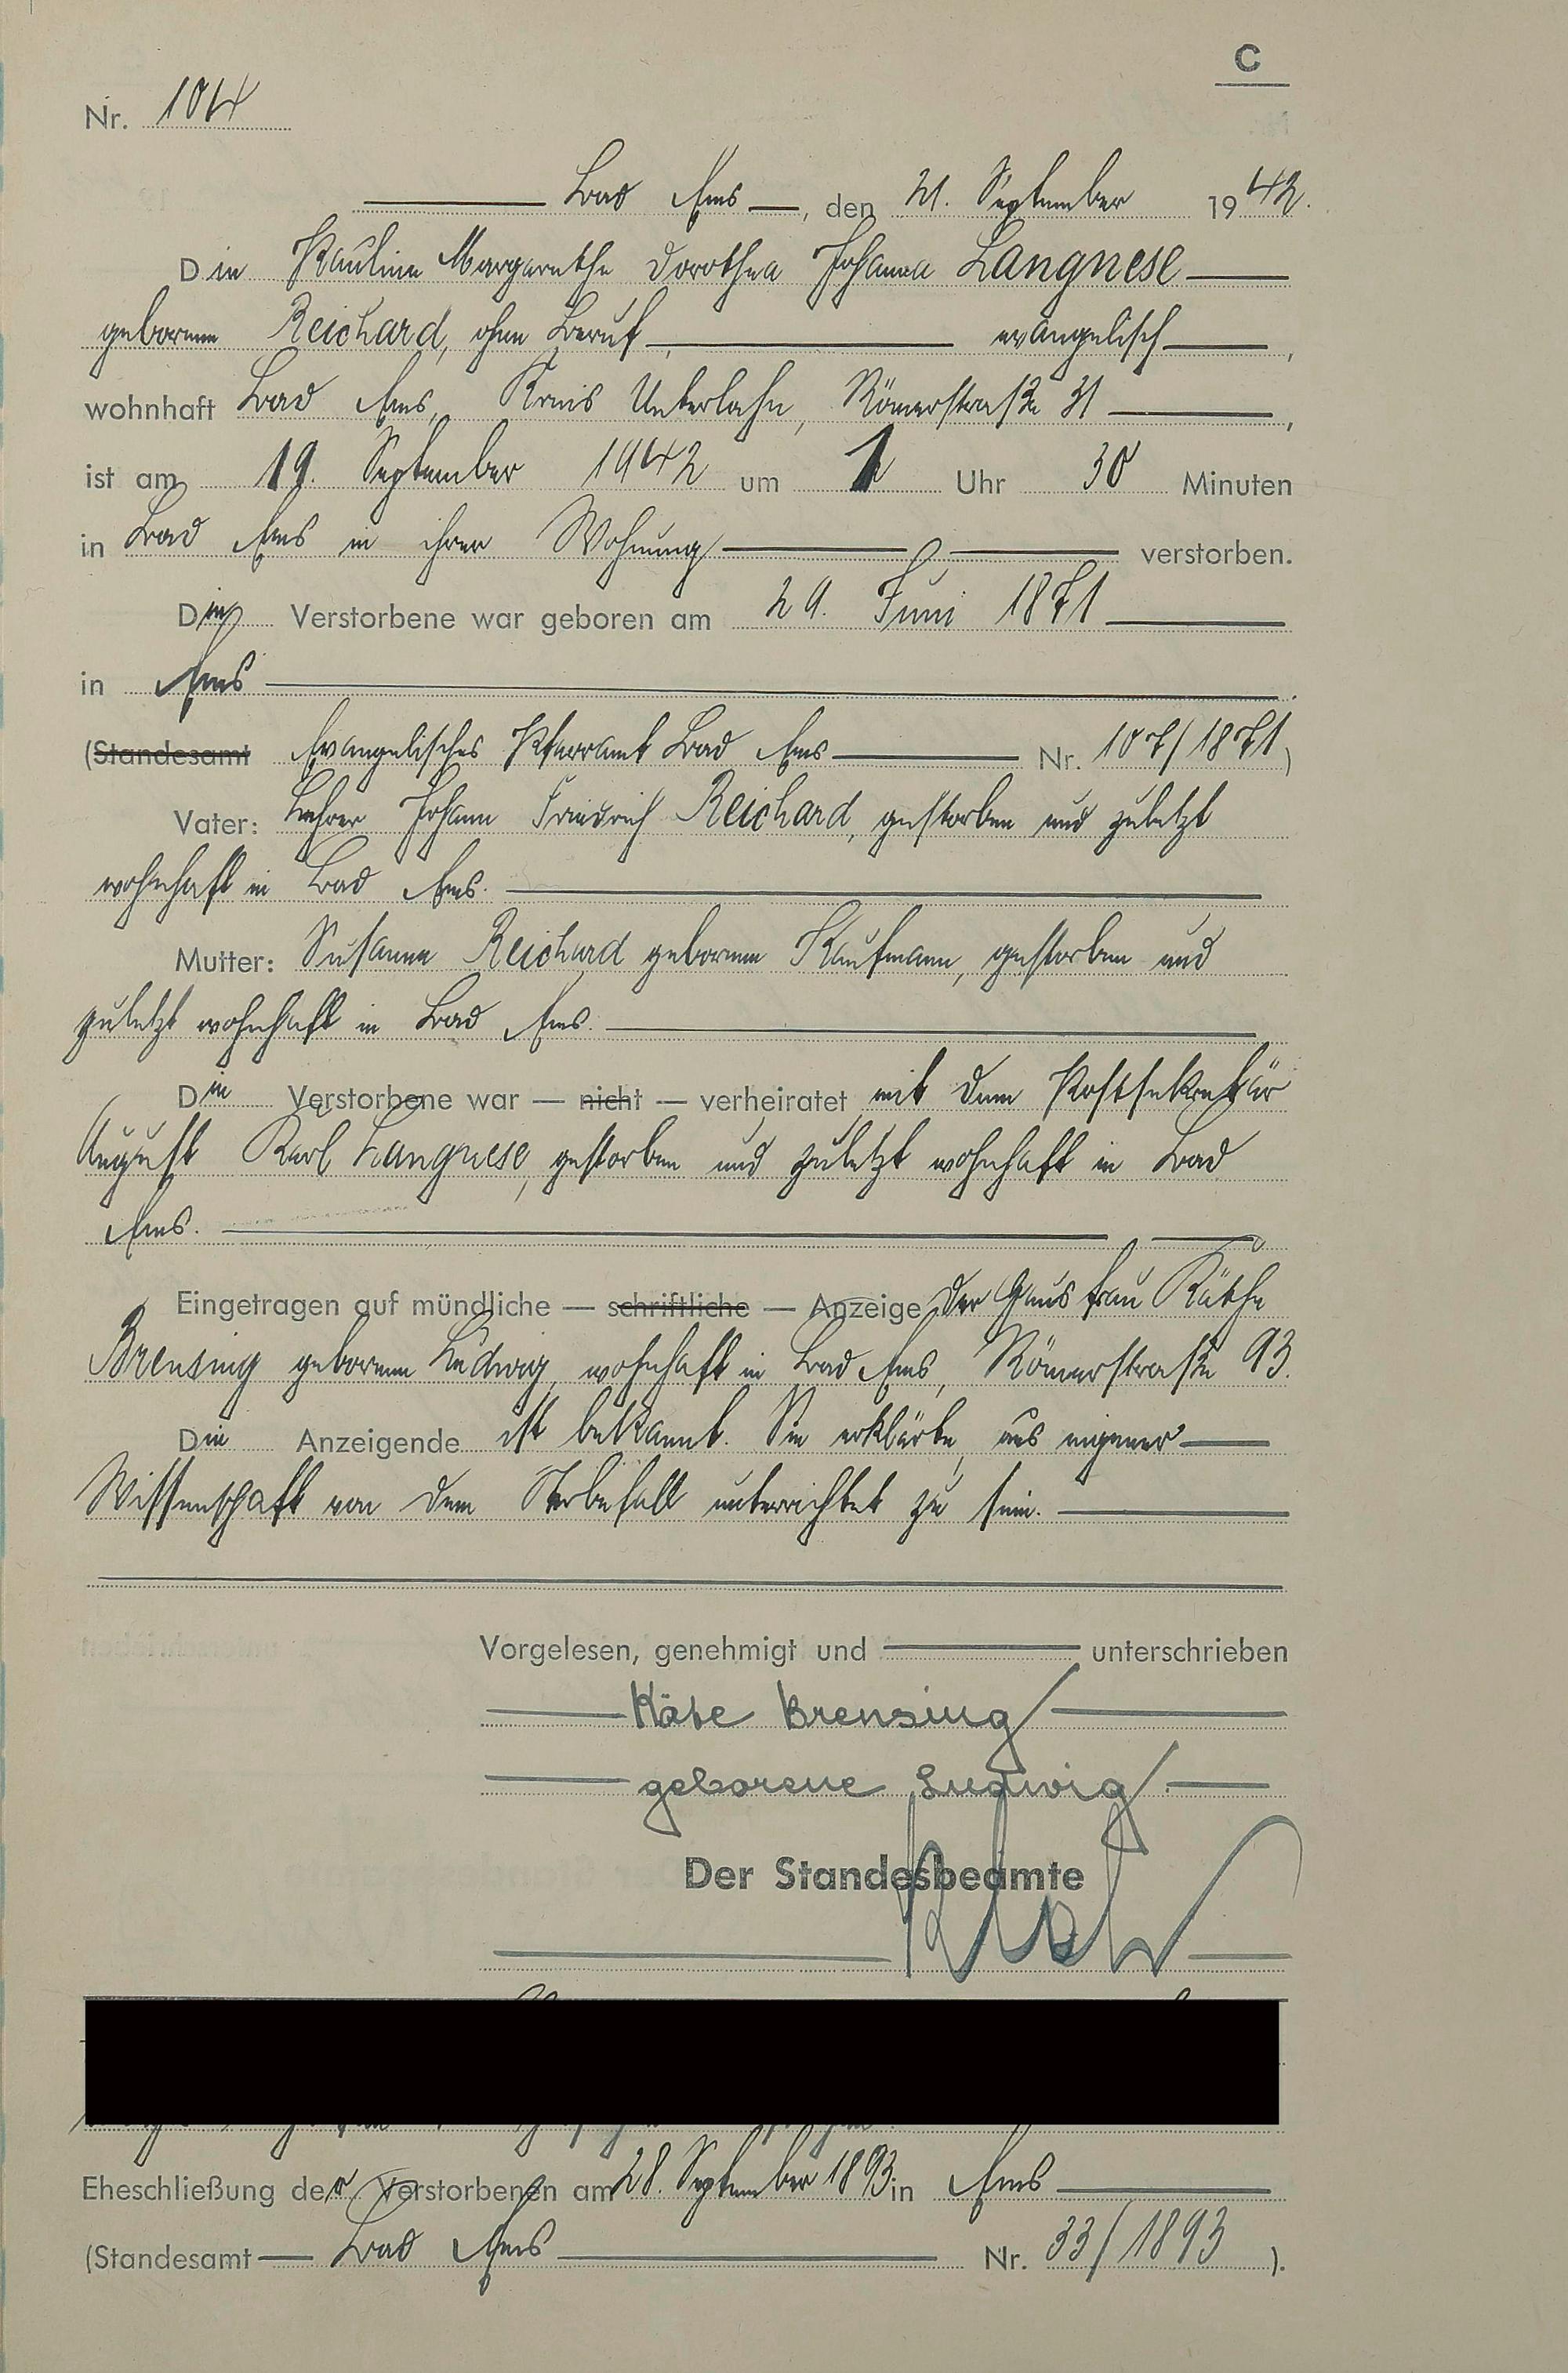 C
Nr. 104
Bad Ems, den 21. September 1942.
Die Pauline Margarethe Dorothea Johanna Langnese
geborene Reichard, ohne Beruf, evangelisch,
wohnhaft Bad Ems, Kreis Unterlahn, Römerstraße 31,
ist am 19. September 1942 um 1 Uhr 30 Minuten
in Bad Ems in ihrer Wohnung verstorben.
Die Verstorbene war geboren am 29. Juni 1871
in Ems.
(Standesamt Evangelisches Pfarramt Bad Ems Nr. 107/1871)
Vater: Lehrer Johann Friedrich Reichard, gestorben und zuletzt
wohnhaft in Bad Ems.
Mutter: Susanne Reichard geborene Kaufmann, gestorben und
zuletzt wohnhaft in Bad Ems.
Die Verstorbene war — nicht — verheiratet mit dem Postsekretär
August Karl Langnese, gestorben und zuletzt wohnhaft in Bad
Ems.
Eingetragen auf mündliche — schriftliche — Anzeige der Hausfrau Käthe
Brensing geborene Ludwig, wohnhaft in Bad Ems, Römerstraße 93.
Die Anzeigende ist bekannt. Sie erklärte, aus eigener
Wissenschaft von dem Sterbefall unterrichtet zu sein.
Vorgelesen, genehmigt und unterschrieben
Käte Brensing
geborene Ludwig
Der Standesbeamte
Eheschließung der Verstorbenen am 28. September 1893 in Ems
(Standesamt Bad Ems Nr. 33/1893).